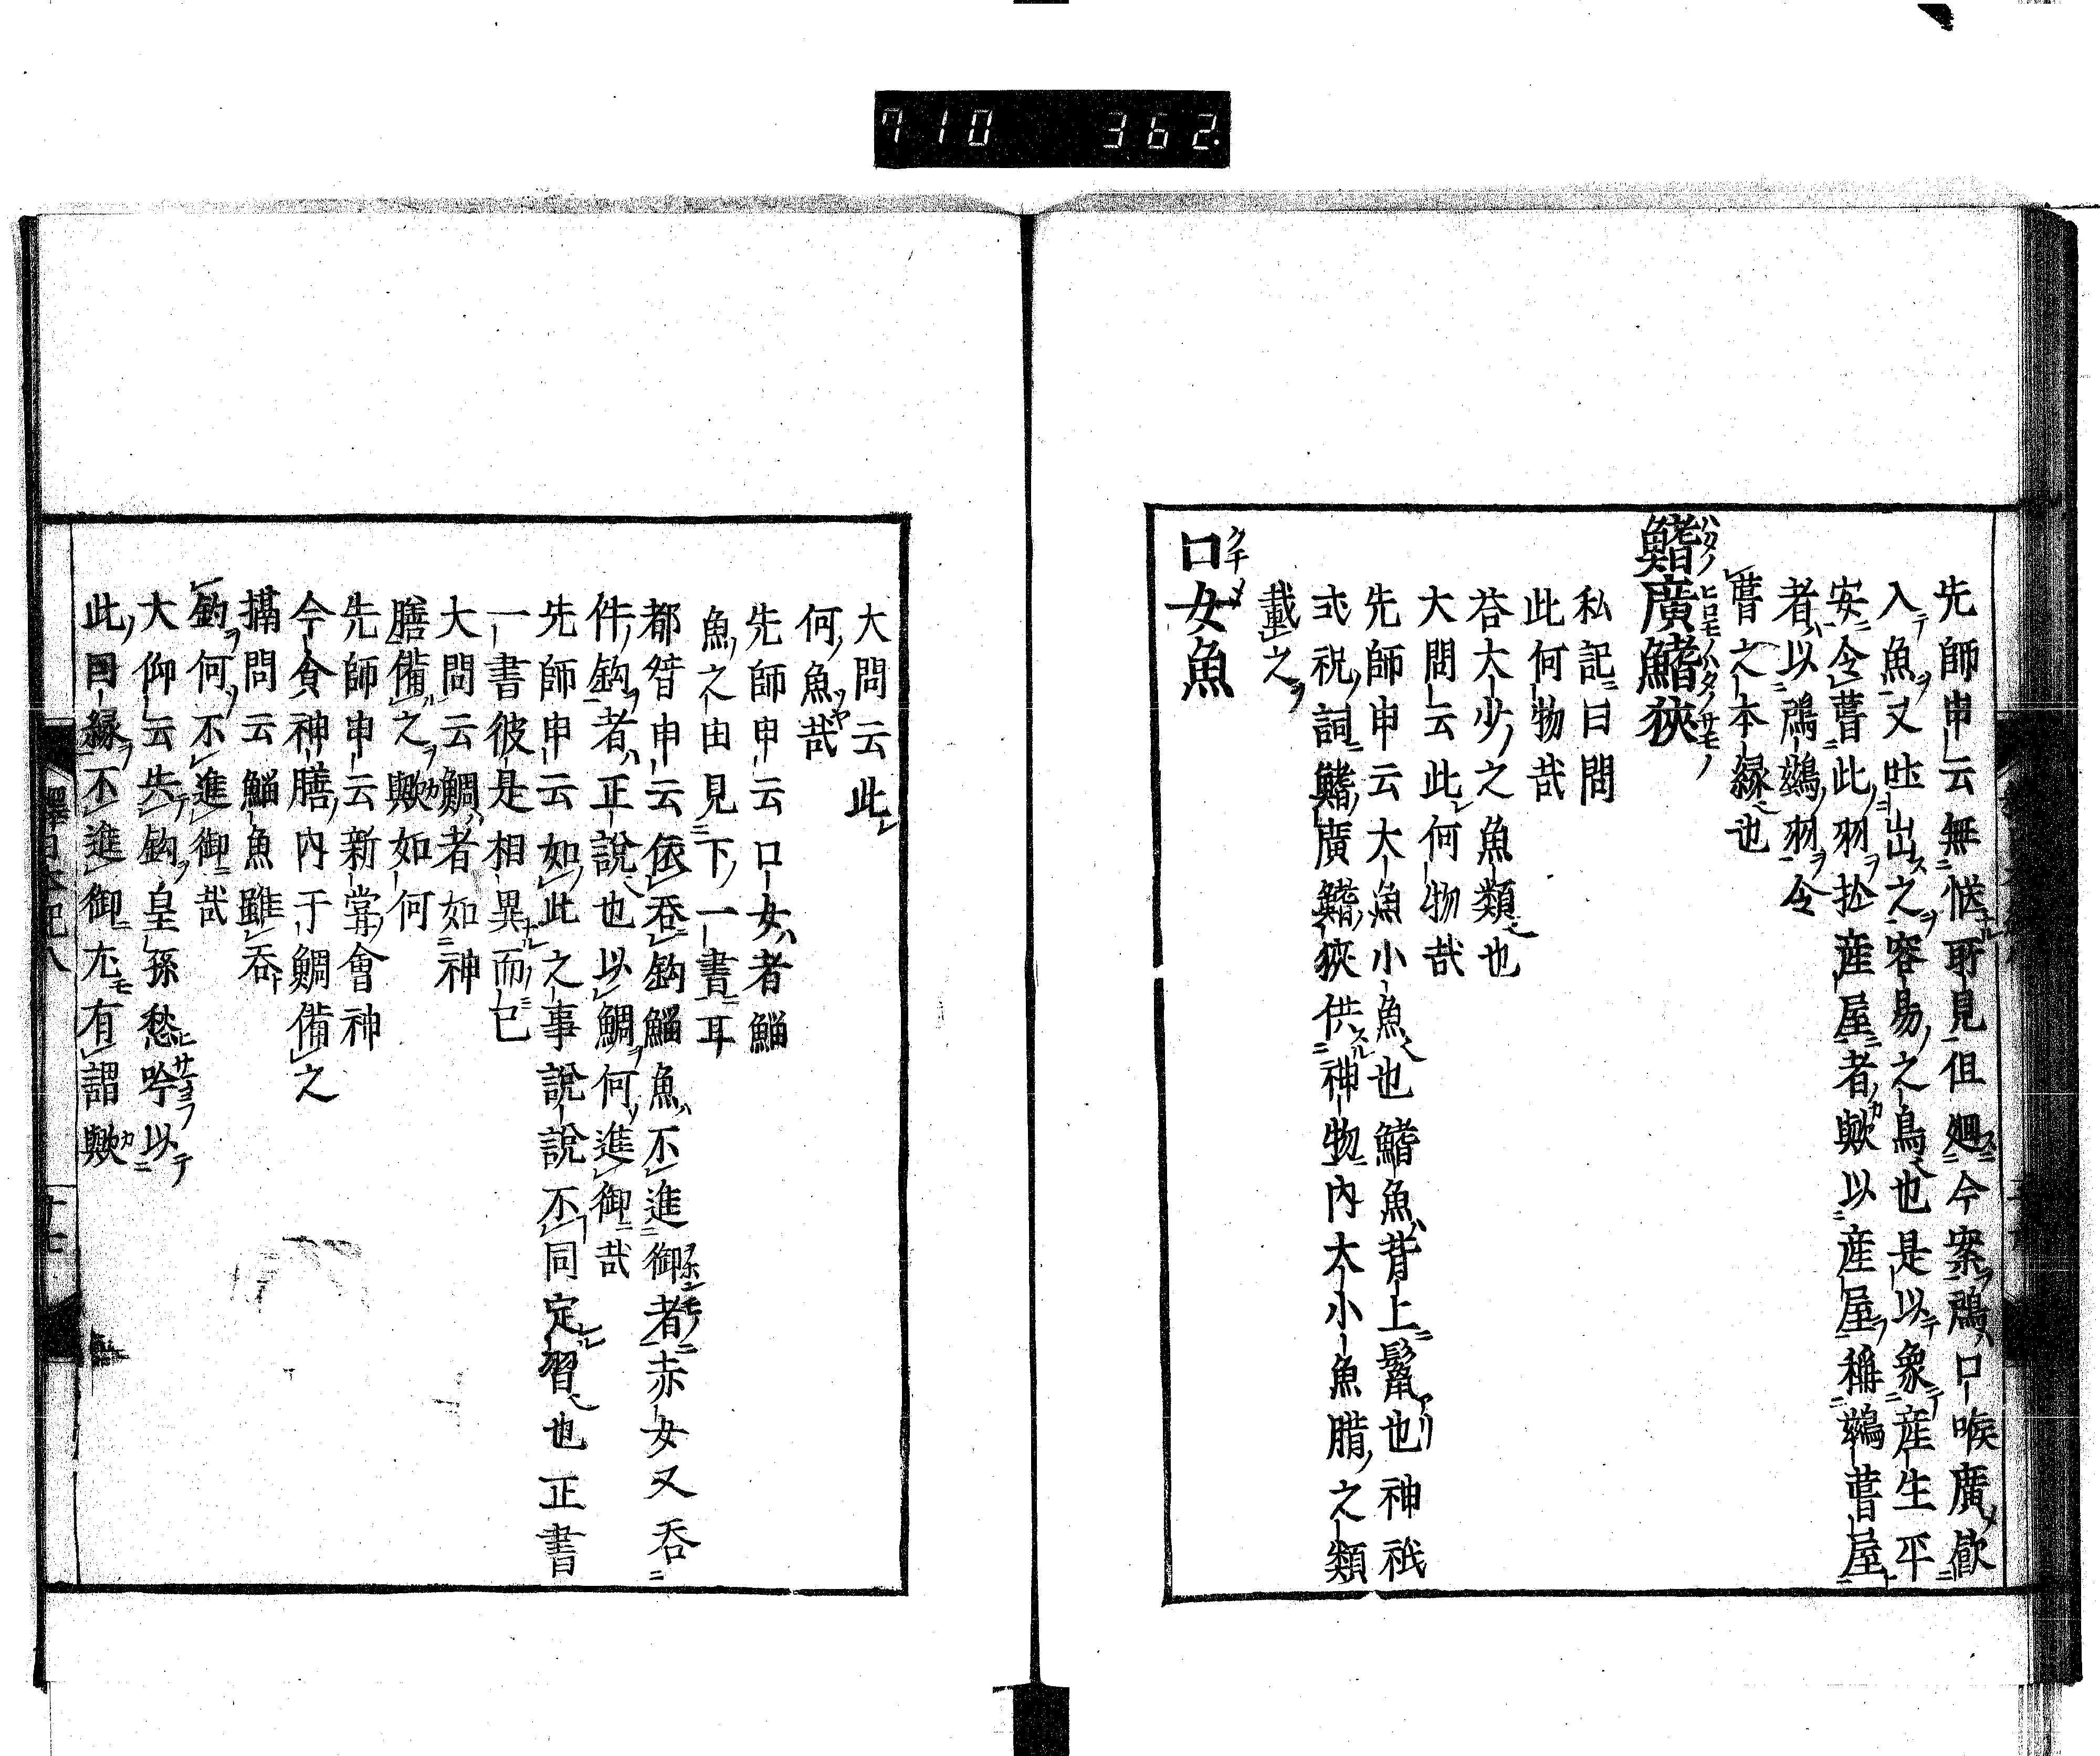 710 362.
先師申云無慥所見但廻今案鸕口喉廣飲
入魚又吐出之容易之鳥也是以象産生平
安令葺此羽於産屋者歟以産屋稱鷀葺屋
者以鸕鷀羽令
葺之本縁也
鰭廣鰭狹
私記曰問
此何物哉
荅大少之魚類也
大問云此何物哉
先師申云大魚小魚也鰭魚背上鬣也神祇
式祝詞鰭廣鰭狹供神物内大小魚腊之類
載之
口女魚
大問云此
何魚哉
先師申云口女者鯔
魚之由見下一書耳
都督申云依吞鈎鯔魚不進御者赤女又吞
件鈎者正說也以鯛何進御哉
先師申云如此之事說說不同定習也正書
一書彼是相異而已
大問云鯛者如神
膳備之歟如何
先師申云新嘗會神
今食神膳内于鯛備之
搹問云鯔魚雖吞
鈎何不進御哉
大仰云失鈎皇孫愁吟以
此因緣不進御尤有謂歟
釋日本紀八
十七